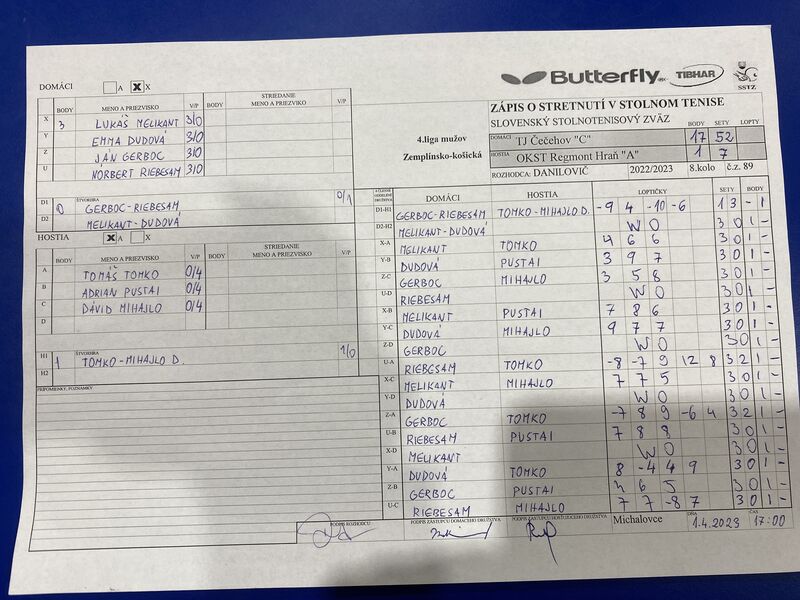 Butterfly TIBHAR SSTZ
DOMÁCI A X X
ZÁPIS O STRETNUTÍ V STOLNOM TENISE
SLOVENSKÝ STOLNOTENISOVÝ ZVÄZ
BODY SETY LOPTY
4.liga mužov
Zemplínsko-košická
DOMÁCI TJ Čečehov "C" 17 52
HOSTIA OKST Regmont Hraň "A" 1 7
ROZHODCA: DANILOVIČ 2022/2023 8.kolo č.z. 89
BODY MENO A PRIEZVISKO V/P BODY STRIEDANIE MENO A PRIEZVISKO V/P
X 3 LUKÁŠ MELIKANT 3/0
Y EMMA DUDOVÁ 3/0
Z JÁN GERBOC 3/0
U NORBERT RIEBESAM 3/0
ŠTVORHRA
D1 0 GERBOC-RIEBESAM 0/1
D2 MELIKANT-DUDOVÁ
HOSTIA X A X
BODY MENO A PRIEZVISKO V/P BODY STRIEDANIE MENO A PRIEZVISKO V/P
A TOMÁŠ TOMKO 0/4
B ADRIAN PUSTAI 0/4
C DÁVID MIHAJLO 0/4
D
ŠTVORHRA
H1 1 TOMKO-MIHAJLO D. 1/0
H2
PRIPOMIENKY, POZNÁMKY
DOMÁCI HOSTIA LOPTIČKY SETY BODY
D1-H1 GERBOC-RIEBESAM TOMKO-MIHAJLO D. -9 4 -10 -6 1 3 - 1
D2-H2 MELIKANT-DUDOVÁ WO 3 0 1 -
X-A MELIKANT TOMKO 4 6 6 3 0 1 -
Y-B DUDOVÁ PUSTAI 3 9 7 3 0 1 -
Z-C GERBOC MIHAJLO 3 5 8 3 0 1 -
U-D RIEBESAM WO 3 0 1 -
X-B MELIKANT PUSTAI 7 8 6 3 0 1 -
Y-C DUDOVÁ MIHAJLO 9 7 7 3 0 1 -
Z-D GERBOC WO 3 0 1 -
U-A RIEBESAM TOMKO -8 -7 9 12 8 3 2 1 -
X-C MELIKANT MIHAJLO 7 7 5 3 0 1 -
Y-D DUDOVÁ WO 3 0 1 -
Z-A GERBOC TOMKO -7 8 9 -6 4 3 2 1 -
U-B RIEBESAM PUSTAI 7 8 8 3 0 1 -
X-D MELIKANT WO 3 0 1 -
Y-A DUDOVÁ TOMKO 8 -4 4 9 3 0 1 -
Z-B GERBOC PUSTAI 3 6 5 3 0 1 -
U-C RIEBESAM MIHAJLO 7 7 -8 7 3 0 1 -
PODPIS ROZHODCU PODPIS ZÁSTUPCU DOMÁCEHO DRUŽSTVA PODPIS ZÁSTUPCU HOSŤUJÚCEHO DRUŽSTVA Michalovce DŇA 1.4.2023 ČAS 17:00